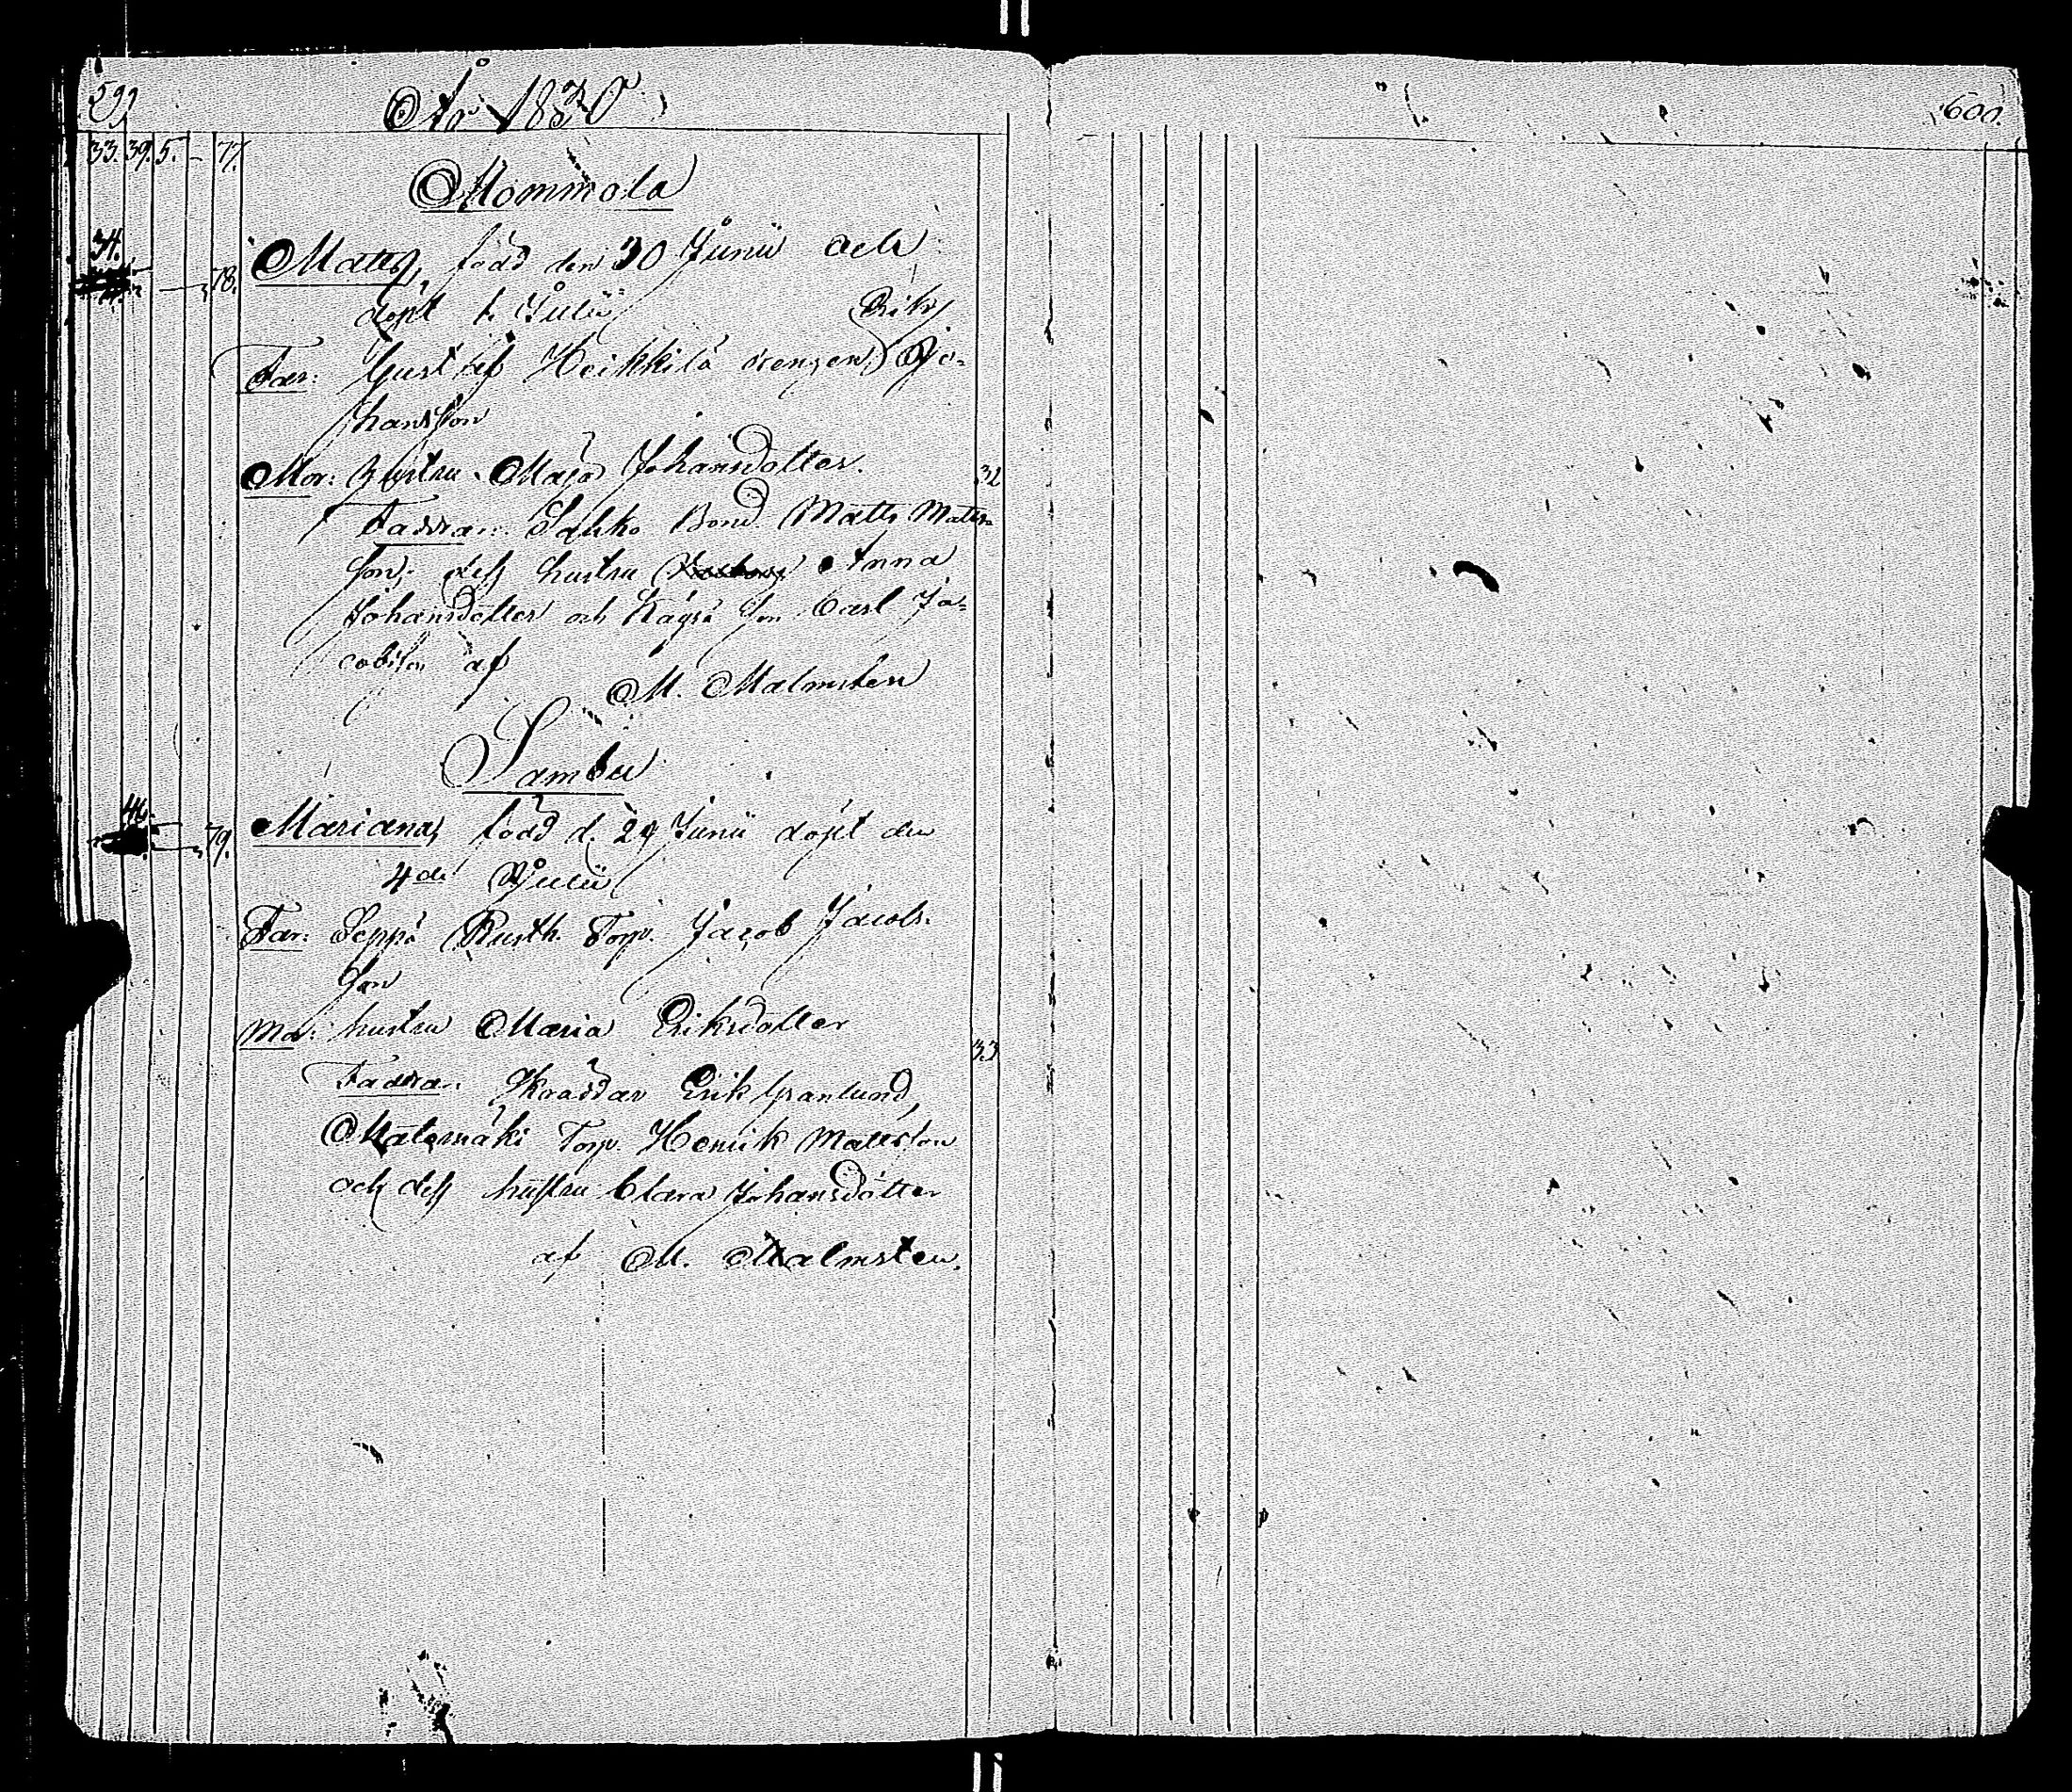 599
År 1830
600.
33. 39. 5. - 77.
Mommola
34.
78. Matts, född den 30 Junii och
döpt 1 Julii
Erik
Far: Gustaf Heikkilä drengen Jo-
hansson
Mor: hustru Maja Johansdotter.
32
Faddrar: Sauko Bond. Matts Matts
son, dess hustru Anna
Johansdotter och Son Carl Ja-
cobsson af
M. Malmsten
Sambu
44.
79. Mariana, född d. 29 Junii döpt den
4de Julii
Far: Seppä Rusth. Torp. Jacob Jacobs
Son
Mor: hustru Maria Eriksdotter
33
Faddrar: Skräddar Erik Granlund,
Torp. Henrik Mattsson
och dess hustru Clara Johansdotter
af M. Malmsten.